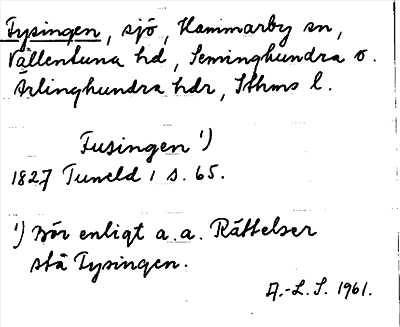 Tysingen, sjö, Hammarby sn,
Vallentuna hd, Seminghundra o.
Ärlinghundra hdr, Sthms l.
Fusingen ¹)
1827 Tuneld 1 s. 65.
¹) Bör enligt a.a. Rättelser
stå Tysingen.
A.-L. S. 1961.